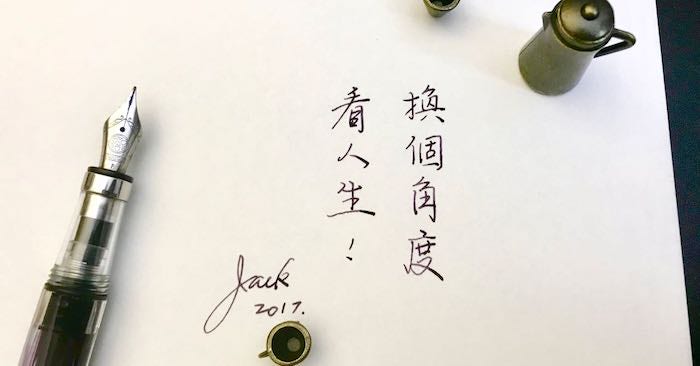 換個角度
看人生！
Jack
2017.